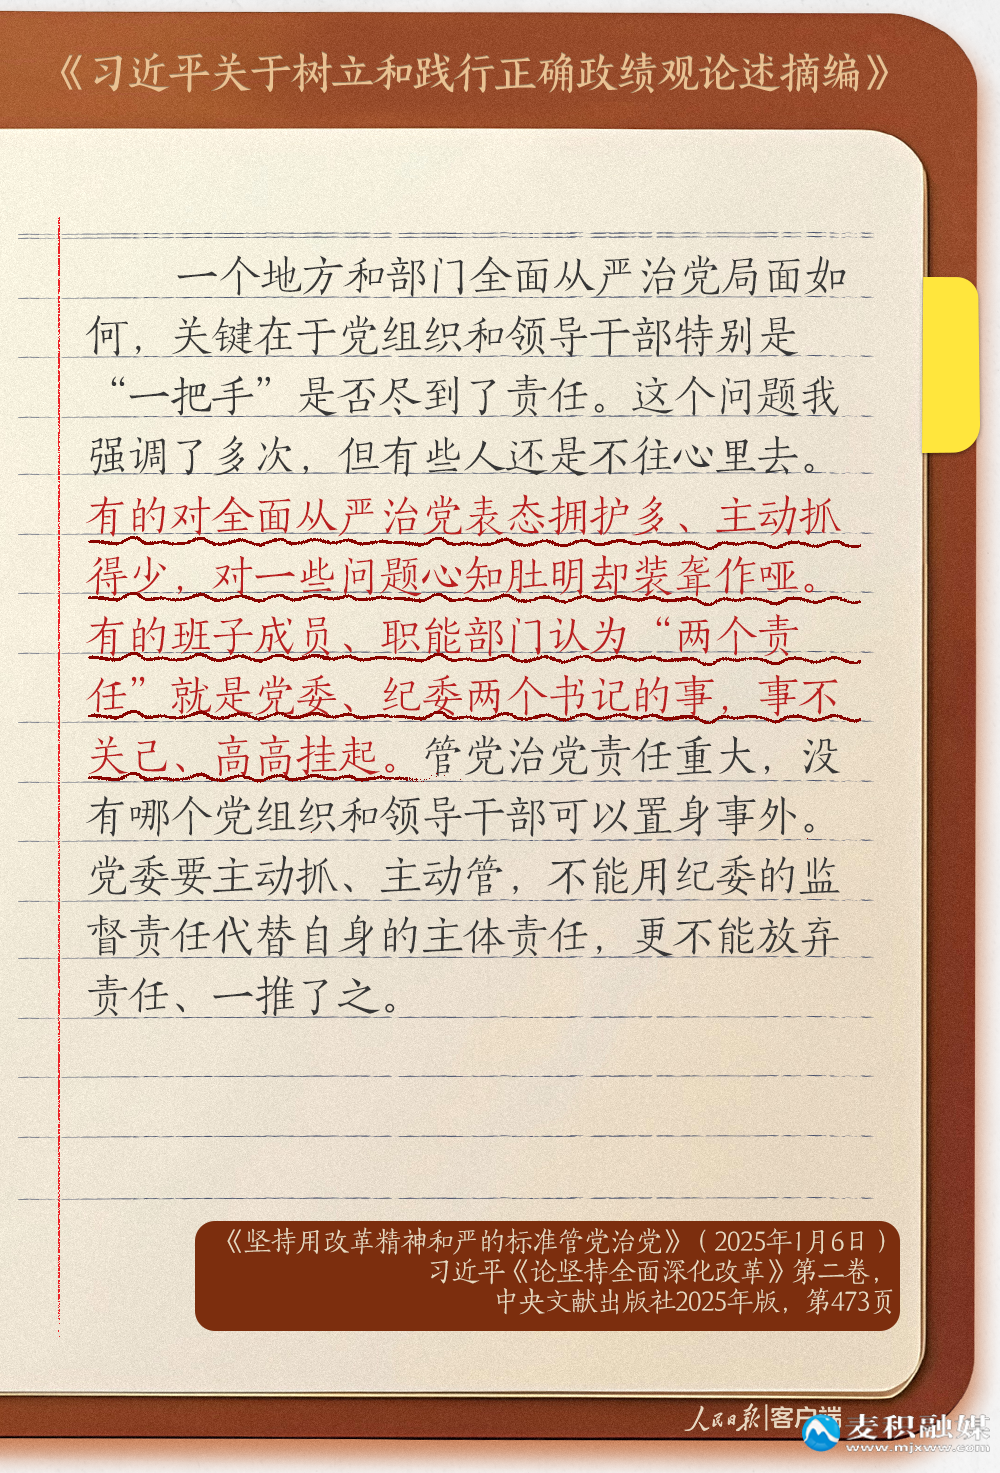 《习近平关于树立和践行正确政绩观论述摘编》
一个地方和部门全面从严治党局面如
何，关键在于党组织和领导干部特别是
“一把手”是否尽到了责任。这个问题我
强调了多次，但有些人还是不往心里去。
有的对全面从严治党表态拥护多、主动抓
得少，对一些问题心知肚明却装聋作哑。
有的班子成员、职能部门认为“两个责
任”就是党委、纪委两个书记的事，事不
关己、高高挂起。管党治党责任重大，没
有哪个党组织和领导干部可以置身事外。
党委要主动抓、主动管，不能用纪委的监
督责任代替自身的主体责任，更不能放弃
责任、一推了之。
《坚持用改革精神和严的标准管党治党》（2025年1月6日）
习近平《论坚持全面深化改革》第二卷，
中央文献出版社2025年版，第473页
人民日报|客户端
麦积融媒
www.mjxww.com